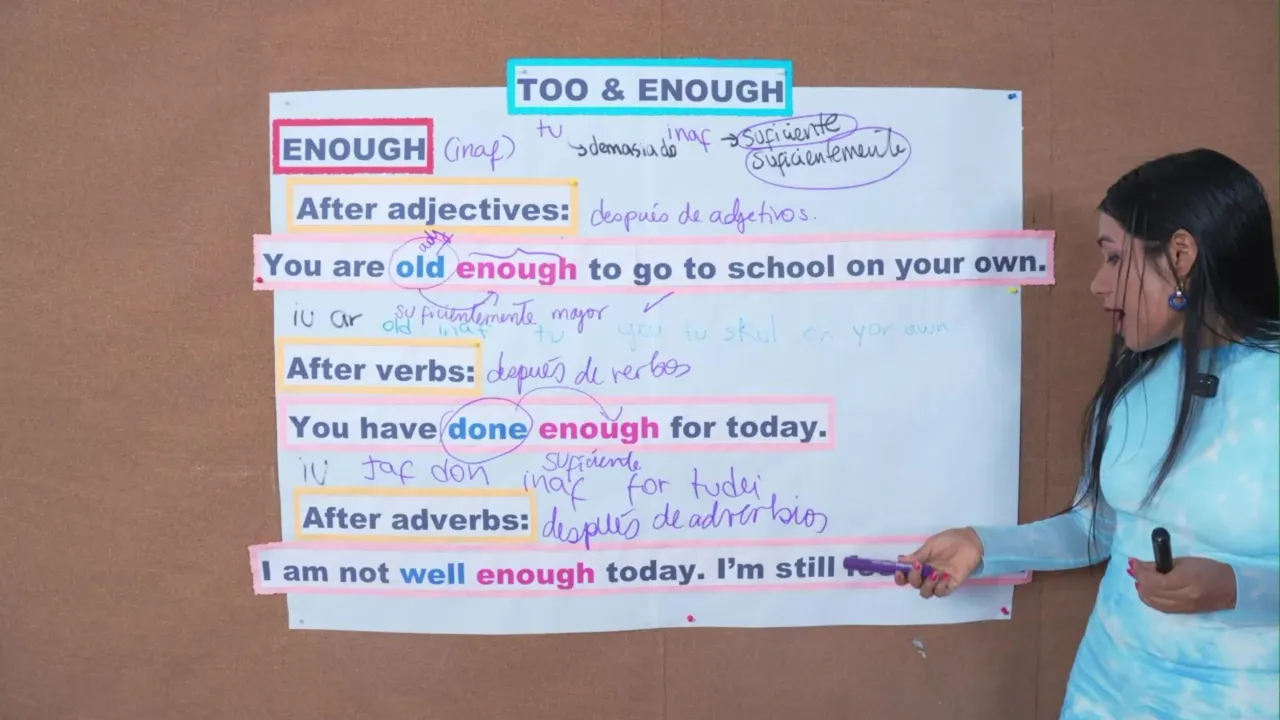 TOO & ENOUGH
ENOUGH (inaf) tu → demasiado inaf → suficiente
suficientemente
After adjectives: después de adjetivos.
adj
You are old enough to go to school on your own.
suficientemente mayor
iu ar old inaf tu you tu skul on yor own
After verbs: después de verbos
You have done enough for today.
suficiente
iu jaf don inaf for tudei
After adverbs: después de adverbios
I am not well enough today. I'm still